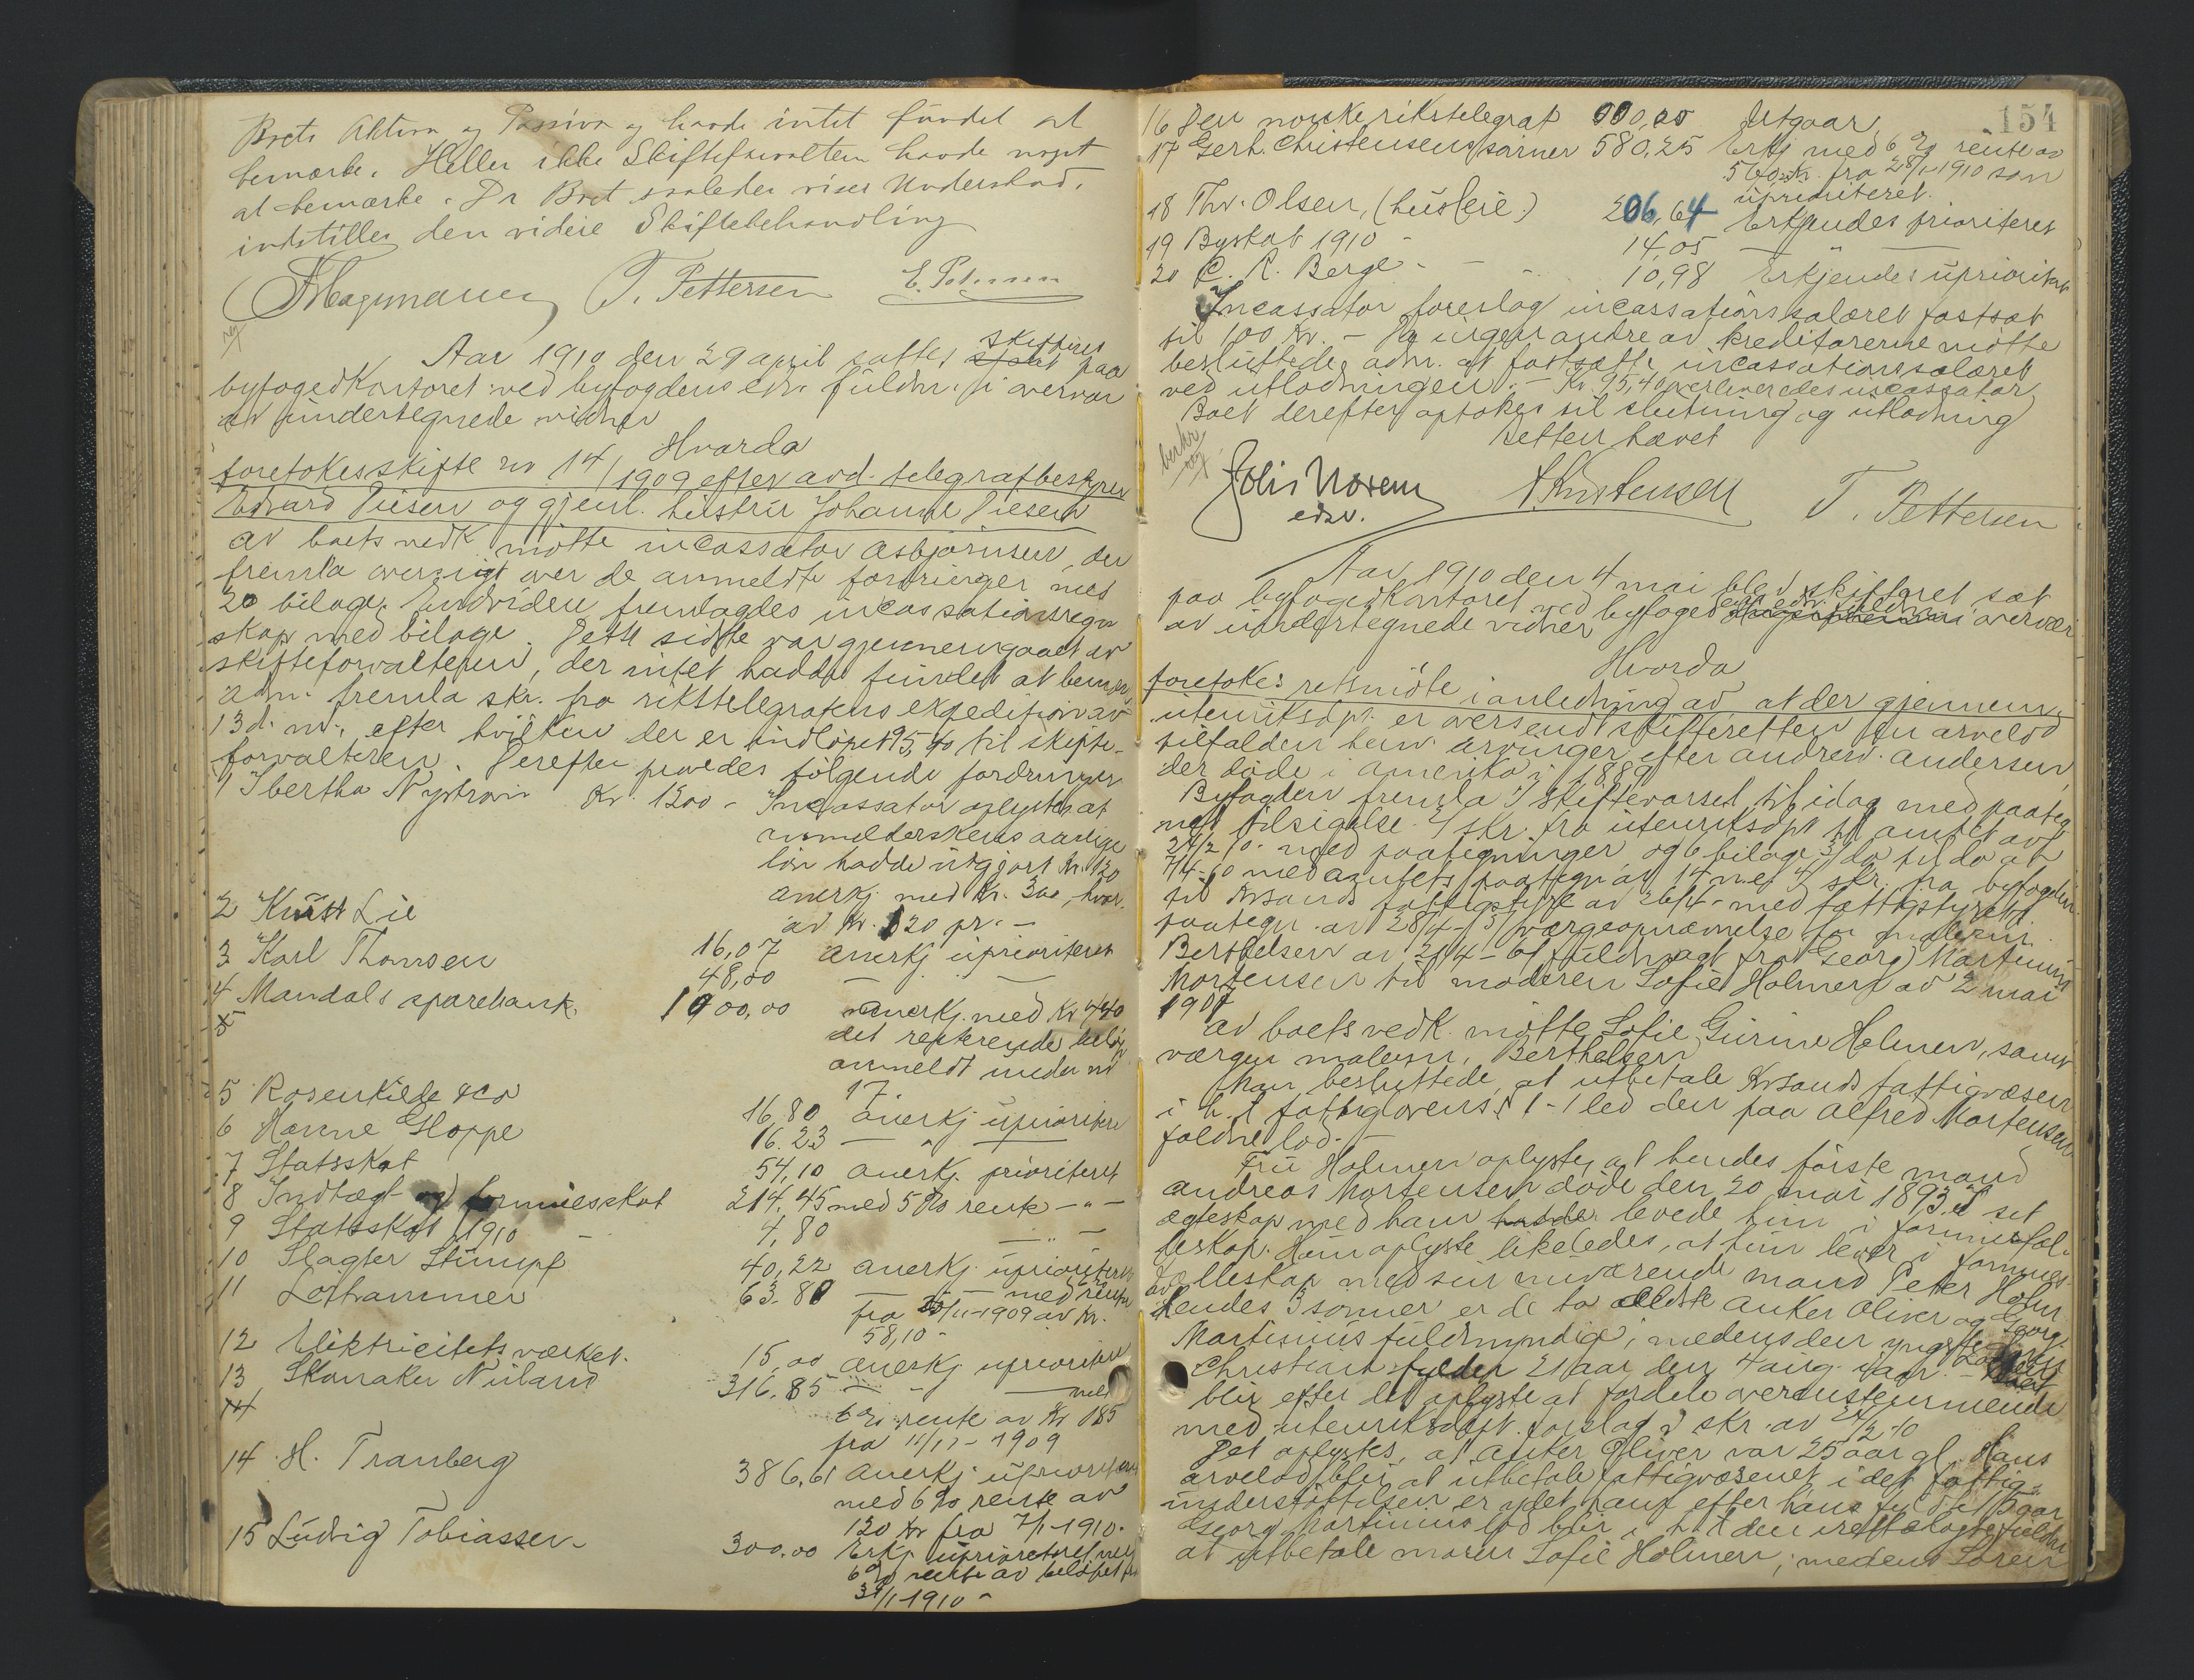 Boets Aktiva og Passiva og havde intet fundet at
bemærke. Heller ikke Skifteforvalteren havde noget
at bemærke. Da Boet saaledes viser Underskud,
indstilles den videre Skiftebehandling
T. Pettersen E. Petersen
Aar 1910 den 29 april sattes skifteret paa
byfogedkontoret ved byfogdens edsv. fuldm. i overvær
av undertegnede vidner
Hvorda
foretokes skifte nr 14/1909 efter avd. telegrafbestyrer
Edvard Diesen og gjenl. hustru Johanne Diesen
Av boets vedk. møtte incassator Asbjørnsen, der
fremla oversigt over de anmeldte fordringer med
20 bilage. Endvidere fremlagdes incassationsregn
skap med bilage. Dette sidste var gjennemgaaet av
skifteforvalteren, der intet hadde fundet at bemærke
Adm. fremla skr. fra rikstelegrafens expedition av
13 d. m., efter hvilken der er indløpet 95,40 til skifte-
forvalteren. Derefter prøvedes følgende fordringer
1 Bertha Nystrøm Kr. 1200 - Incassator oplyste at
anmelderskens aarlige
løn hadde utgjort kr. 120
anerkj. med kr. 300, hvor
av kr. 120 pr. -
2 Knut Lie 16,07 anerkj uprioriteret
3 Karl Thomsen 48,00 — —
4 Mandals sparebank. 1900,00 anerkj. med Kr 440
det resterende beløp
anmeldt under nr
17.
5 Rosenkilde & Co 16.80 anerkj uprioriteret
6 Hanne Gloppe 16.23 — " —
7 Statsskat 54,10 anerkj. prioriteret
8 Indtægt- og formuesskat 214.45 med 5 % rente - " -
9 Statsskat 1910 - 4,80 — " —
10 Slagter Stümpf 40,22 anerkj uprioriteret
11 Lothammer 63.80 — med rente
fra /11-1909 av kr.
58,10 -
12 Elektricitetsværket. 15,00 anerkj uprioriteret
13 Skomaker Nuland 316.85 — - — med
6 % rente av Kr 185
fra 11/11 - 1909
14 H. Tranberg 386,61 anerkj uprioriteret
med 6 % rente av
120 kr fra 7/1-1910.
15 Ludvig Tobiassen - 300.00 Erkj uprioriteret med
6 % rente av beløpet fra
31/1-1910 -
154
16 Den norske rikstelegraf 000,00 Utgaar
17 Gerh. Christensens sønner 580,25 Erkj med 6 % rente av
560 kr. fra 28/1 1910 som
uprioriteret.
18 Thv. Olsen, (husleie) 206,64 Erkjendes prioriteret
19 Byskat 1910 - 14,05 — " —
20 C. R. Berge - - - 10,98 Erkjendes uprioritert
Incassator foreslog incassationssalæret fastsat
til 100 Kr. - Da ingen andre av kreditorerne møtte
besluttede adm. at fastsætte incassationssalæret
ved utlodningen. - Kr. 95,40 overleveredes incassator
Boet derefter optokes til slutning og utlodning
Retten hævet
edsv. T. Pettersen
Aar 1910 den 4 mai blev skifteret sat
paa byfogedkontoret ved byfogdens edsv. fuldm. i overvær
av undertegnede vidner
Hvorda
foretokes retsmøte i anledning av at der gjennem
utenriksdpt. er oversendt skifteretten en arvelod
tilfalden herv. arvinger efter Andreas Andersen
der døde i Amerika i 1889.
Byfogden fremla 1/ skiftevarsel til idag med paategn
med tilsigelse. 2/ skr. fra utenriksdpt til amtet av
24/2 10 - med paategninger og 6 bilage 3/ do til do av
7/4-10 med amtets paategn av 14 n.e 4/ skr. fra byfogden
til Krsands fattigstyre av 26/4 - med fattigstyrets
paategn av 28/4 - 5/ værgeopnævnelse for malerm.
Berthelsen av 21/4 - 6/ fuldmagt fra Georg Martinius
Mortensen til moderen Sofie Holmen av 2 mai
1907
Av boets vedk. møtte Sofie Gurine Holmen, samt
værgen malerm. Berthelsen
Man besluttede, at utbetale Krsands fattigvæsen
i h. t. fattiglovens § 1 - 1 led den paa Alfred Mortensen
faldne lod. -
Fru Holmen oplyste at hendes første mand
Andreas Mortensen døde den 20 mai 1893. I sit
egteskap med ham hadde levede hun i formuesfæl-
leskap. Hun oplyste likeledes, at hun lever i formues-
fælleskap med sin nuværende mand Peter Holm
Av hendes 3 sønner er de to ældste Anker Oliver og Georg
Martinius fuldmyndig, medens den yngste
Christian fylder 21 aar den 4 aug. iaar. -
blir efter det oplyste at fordele overensstemmende
med utenriksdept. forslag i skr. av 24/2-10
Det oplystes, at Anker Oliver var 25 aar gl. Hans
arvelod blir at utbetale fattigvæsenet, idet fattig-
understøttelsen er ydet ham efter hans fyldte 15 aar
Georg Martinius lod blir i h. t. den fremlagte fuldm
at utbetale moren Sofie Holmen, medens Søren